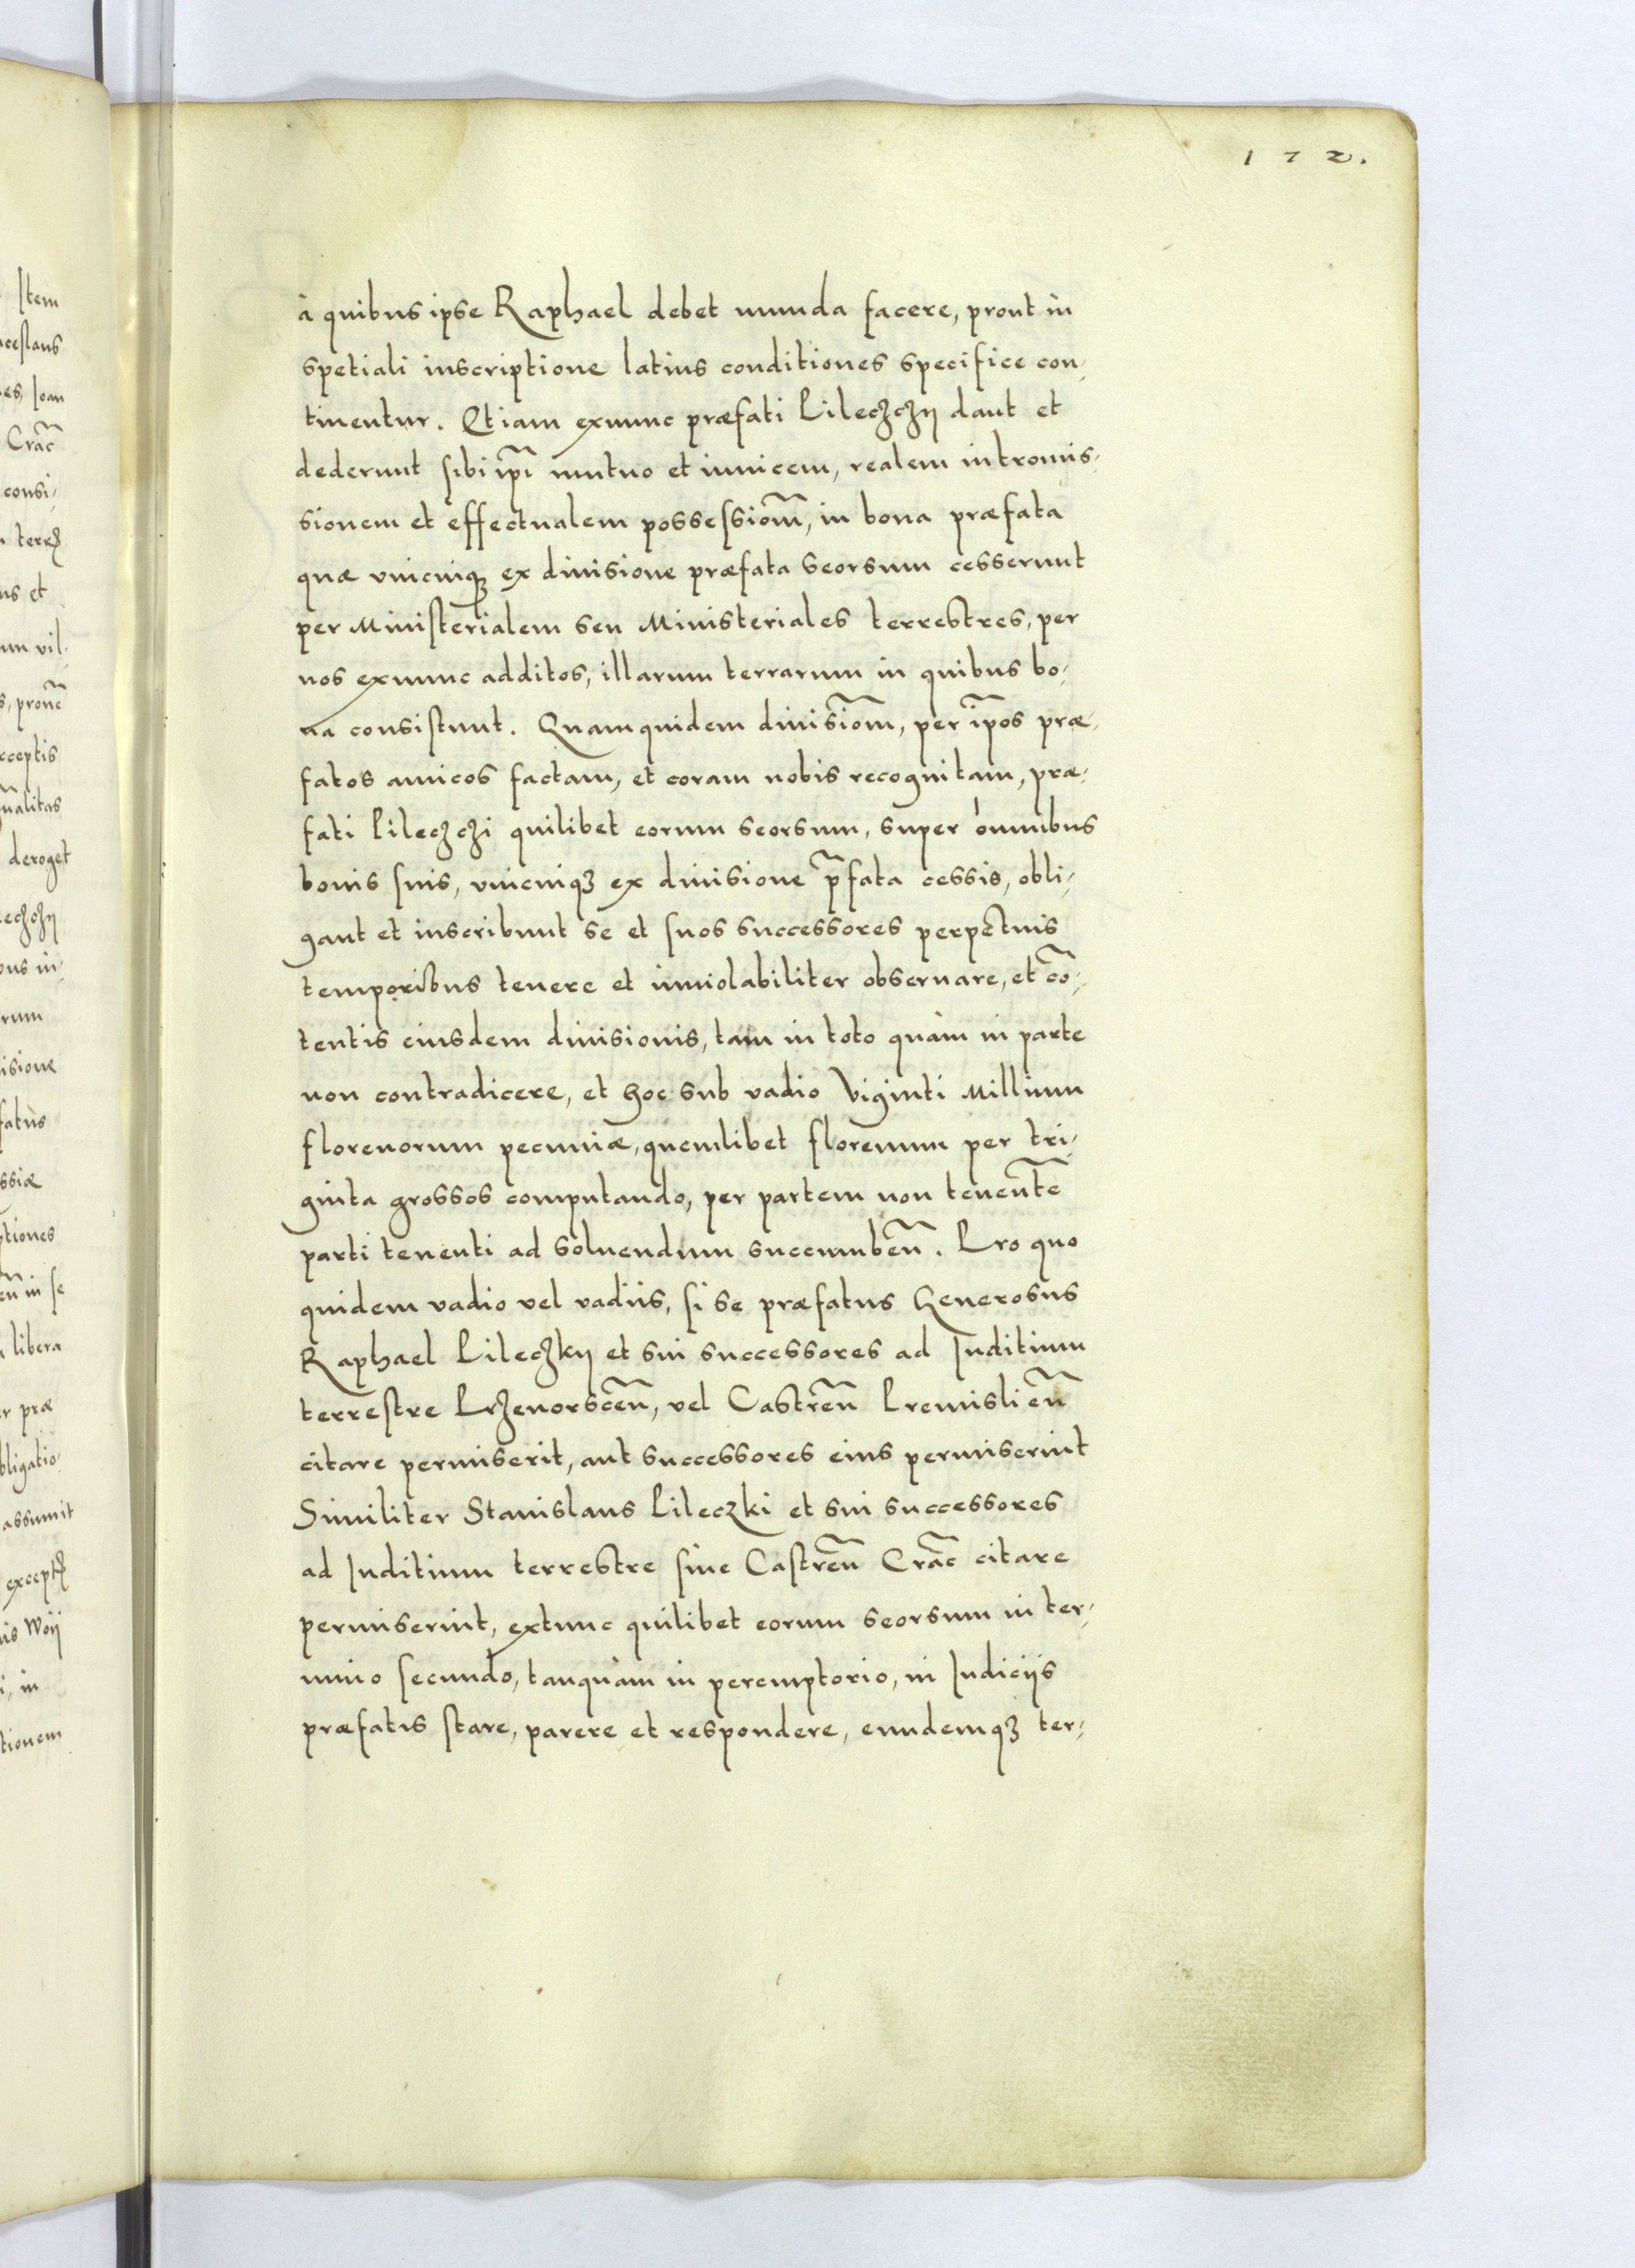 172.
à quibus ipse Raphael debet munda facere, prout in
spetiali inscriptione latius conditiones specifice con-
tinentur. Etiam exnunc præfati Pileczczÿ dant et
dederunt sibi ip̃i mutuo et inuicem, realem intromis-
sionem et effectualem possessiom̃, in bona præfata
quæ vnicuiqꝫ ex diuisione præfata seorsum cesserunt
per Ministerialem seu Ministeriales terrestres, per
nos exnunc additos, illarum terrarum in quibus bo-
na consistunt. Quamquidem diuisiom̃, per ip̃os præ-
fatos amicos factam, et coram nobis recognitam, præ-
fati Pileczczi quilibet eorum seorsum, super omnibus
bonis suis, vnicuiqꝫ ex diuisione p̃fata cessis, obli-
gant et inscribunt se et suos successores perpetuis
temporibus tenere et inuiolabiliter obseruare, et cõ-
tentis eiusdem diuisionis, tam in toto quàm in parte
non contradicere, et hoc sub vadio Viginti Millium
florenorum pecuniæ, quemlibet florenum per tri-
ginta grossos computando, per partem non tenentẽ
parti tenenti ad soluendum succumbeñ. Pro quo
quidem vadio vel vadiis, si se præfatus Generosus
Raphael Pileczkÿ et sui successores ad Iuditium
terrestre Przeuorsceñ, vel Castreñ Premislieñ
citare permiserit, aut successores eius permiserint
Similiter Stanislaus Pileczki et sui successores
ad Iuditium terrestre siue Castreñ Crac̃ citare
permiserint, extunc quilibet eorum seorsum in ter-
mino secundo, tanquàm in peremptorio, in Iudiciis
præfatis stare, parere et respondere, eundemqꝫ ter-